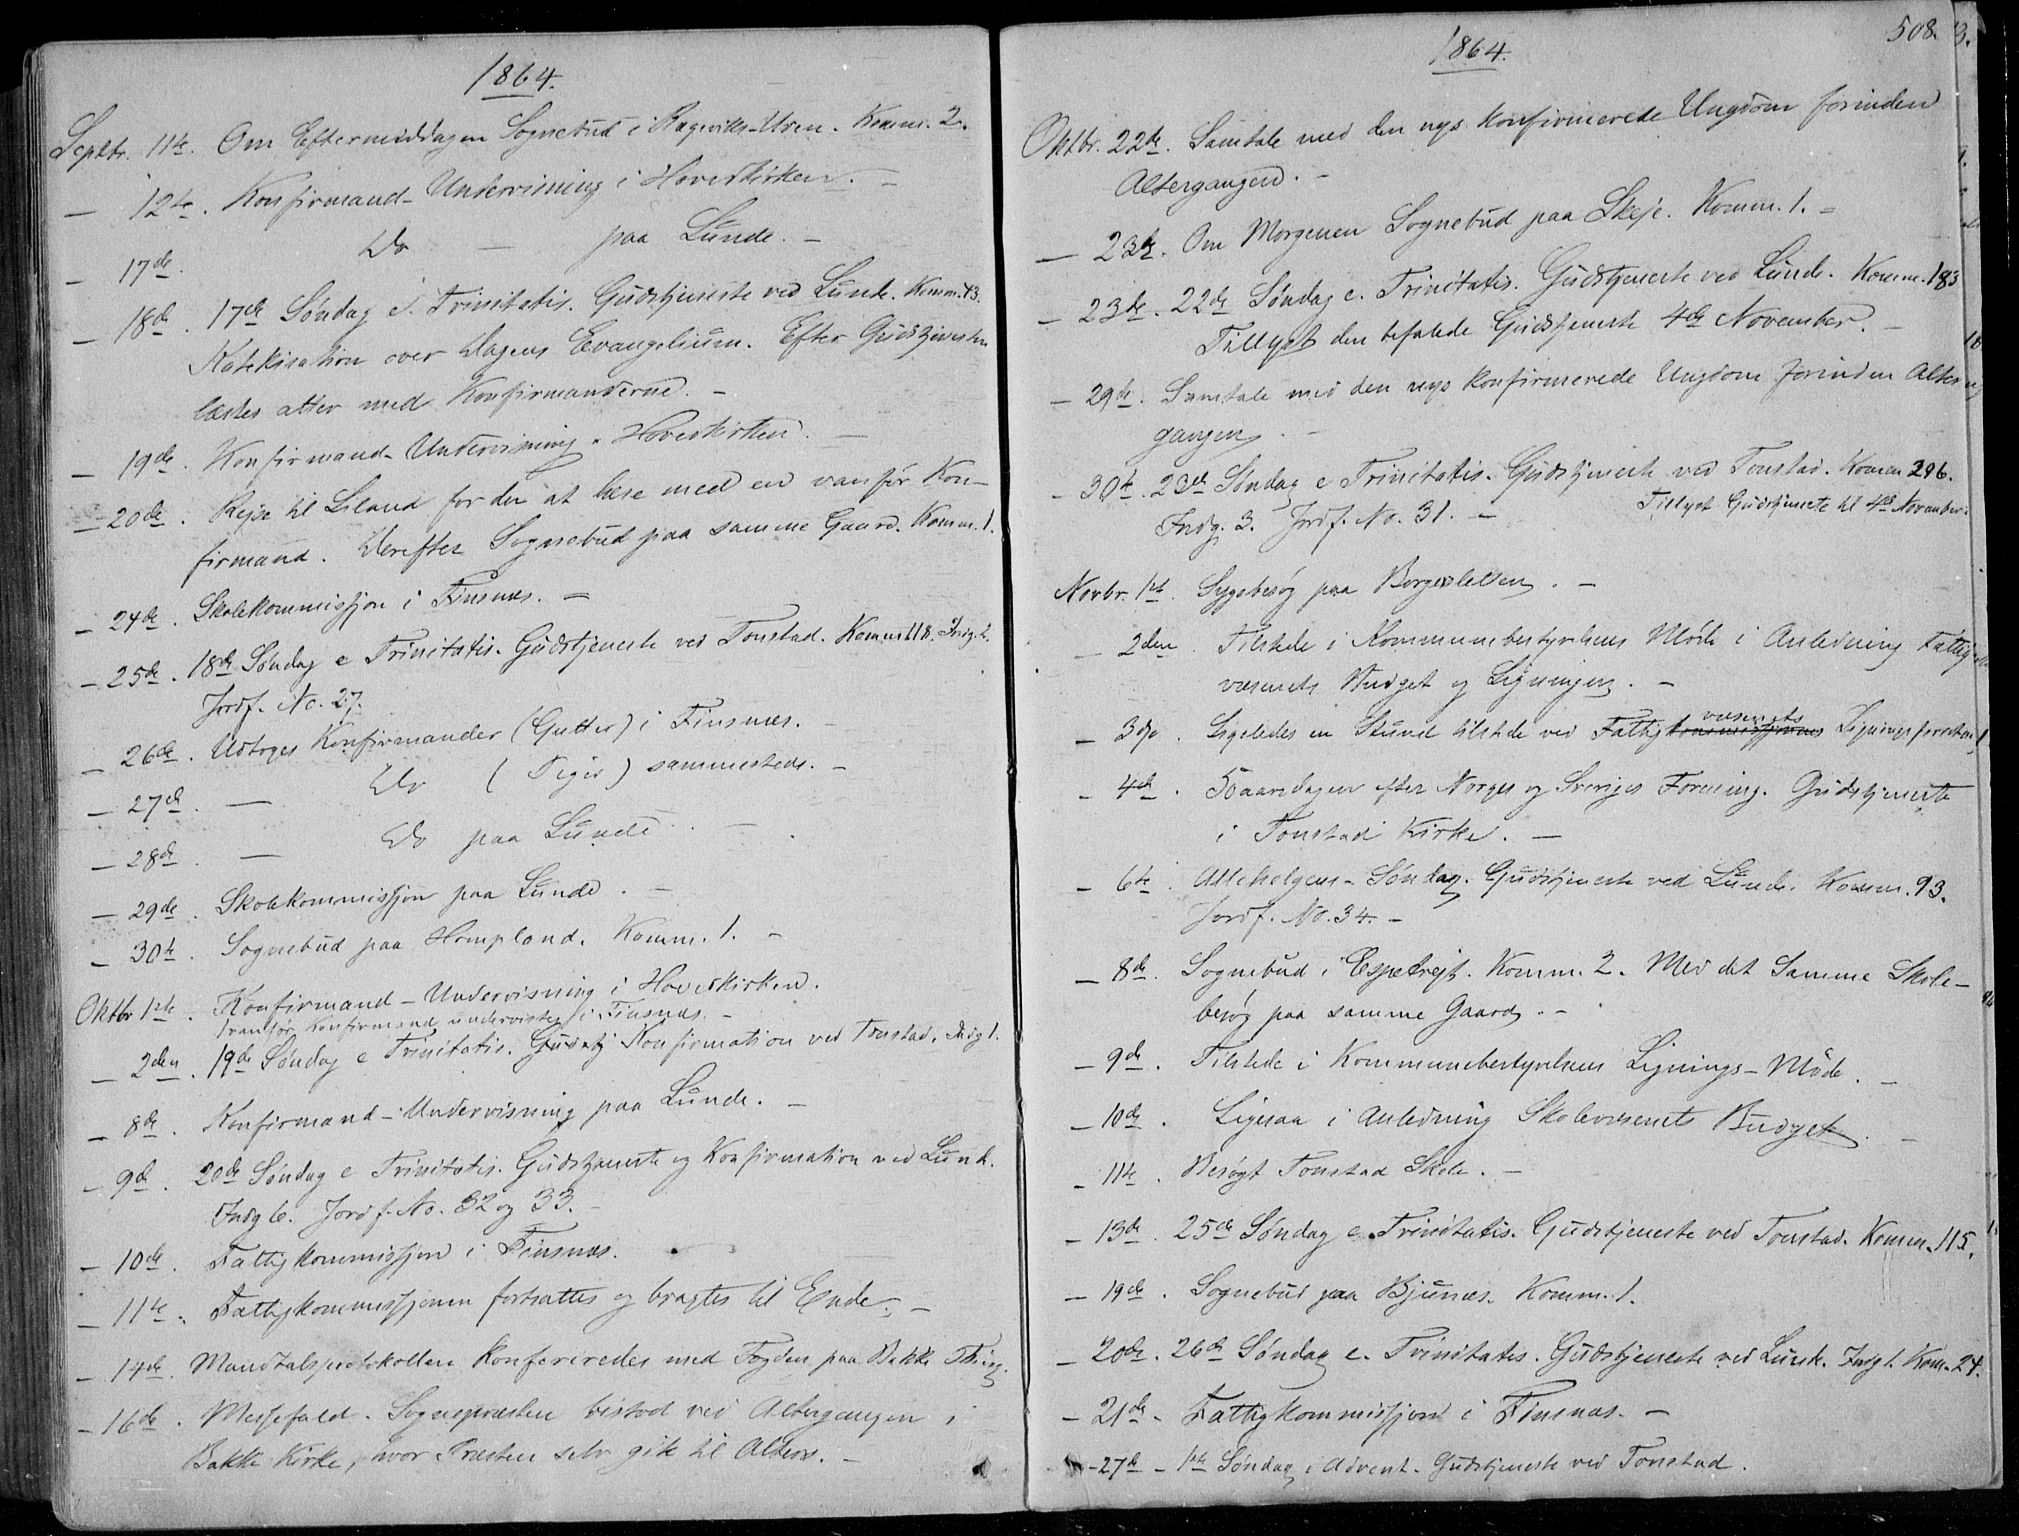 1864.
Septbr. 11te. Om Eftermiddagen Sognebud i Ragevids-Uren. Komm. 2.
— 12te. Konfirmand-Undervisning i Hovedkirken. —
— 17de. Do — paa Lunde. —
— 18de. 17de Søndag e. Trinitatis. Gudstjeneste ved Lunde. Komm. 73.
Katekisation over Dagens Evangelium. Efter Gudstjenesten
læstes atter med Konfirmanderne. —
— 19de. Konfirmand-Undervisning i Hovedkirken. —
— 20de. Rejse til Liland for der at læse med en vanfør Kon-
firmand. Derefter Sognebud paa samme Gaard. Komm. 1.
— 24de. Skolekommissjon i Finsnæs. —
— 25de. 18de Søndag e Trinitatis. Gudstjeneste ved Tonstad. Komm 118. Indg. 2.
Jordf. No. 27.
— 26de. Udtoges Konfirmander (Gutter) i Finsnæs. —
— 27de. — Do (Piger) sammesteds. —
— 28de. — Do paa Lunde. —
— 29de. Skolekommissjon paa Lunde. —
— 30te. Sognebud paa Hompland. Komm. 1. —
Oktbr 1ste. Konfirmand-Undervisning i Hovedkirken.
1 vanfør Konfirmand undervistes i Finsnæs. —
— 2den. 19de Søndag e Trinitatis. Gudstj Konfirmation ved Tonstad. Indg 1.
— 8de. Konfirmand-Undervisning paa Lunde. —
— 9de. 20de Søndag e Trinitatis. Gudstjeneste og Konfirmation ved Lunde.
Indg 6. Jordf. No. 32 og 33. —
— 10de. Fattigkommissjon i Finsnæs. —
— 11te. Fattigkommissjonen fortsattes og bragtes til Ende. —
— 14de. Mandtalsprotokollen konfereredes med Fogden paa Bakke Thing.
— 16de. Messefald. Sognepræsten bistod ved Altergangen i
Bakke Kirke, hvor Præsten selv gik til Alters. —
508.
1864.
Oktbr. 22de. Samtale med den nys konfirmerede Ungdom forinden
Altergangen. —
— 23de. Om Morgenen Sognebud paa Skeje. Komm. 1. —
— 23de. 22de Søndag e. Trinitatis. Gudstjeneste ved Lunde. Komm. 183
Tillyst den befalede Gudstjeneste 4de November. —
— 29de. Samtale med den nys konfirmerede Ungdom forinden Alter
gangen. —
— 30te. 23de Søndag e Trinitatis. Gudstjeneste ved Tonstad. Komm 296.
Indg. 3. Jordf. No. 31. — Tillyst Gudstjeneste til 4de November.
Novbr. 1ste. Sygebesøg paa Borgesletten. —
— 2den. Tilstede i Kommunebestyrelsens Møde i Anledning Fattig-
væsenets Budget og Ligningen. —
— 3die. Ligeledes en Stund tilstede ved Fattigvæsenets Ligningsforretn.
— 4de. 50aarsdagen efter Norges og Sveriges Forening. Gudstjeneste
i Tonstad Kirke. —
— 6te. Allehelgens-Søndag. Gudstjeneste ved Lunde. Komm. 93.
Jordf. No. 34. —
— 8de. Sognebud i Espetvejt. Komm. 2. Med det Samme Skole-
besøg paa samme Gaard. —
— 9de. Tilstede i Kommunebestyrelsens Lignings-Møde. —
— 10de. Ligesaa i Anledning Skolevæsenets Budget. —
— 11te. Besøgt Tonstad Skole. —
— 13de. 25de Søndag e. Trinitatis. Gudstjeneste ved Tonstad. Komm. 115.
— 19de. Sognebud paa Bjunæs. Komm. 1.
— 20de. 26de Søndag e. Trinitatis. Gudstjeneste ved Lunde. Indg 1. Kom. 24.
— 21de. Fattigkommissjon i Finsnæs. —
— 27de — 1ste Søndag i Advent. Gudstjeneste ved Tonstad.